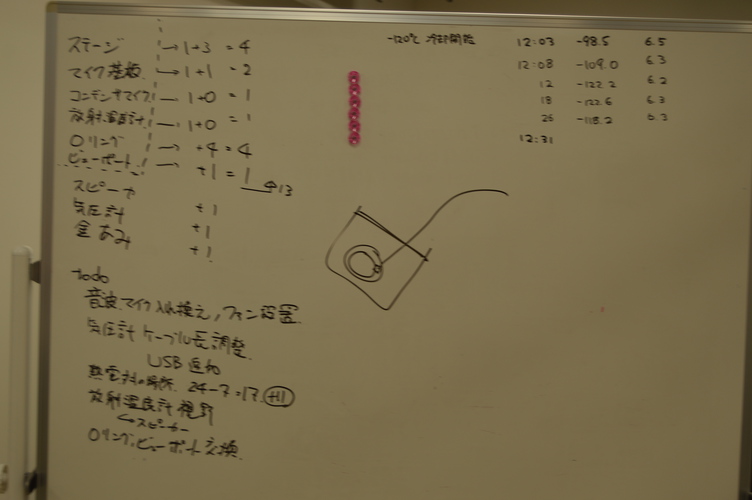 ステージ → 1+3 = 4
マイク基板 → 1+1 = 2
コンデンサマイク → 1+0 = 1
放射温度計 → 1+0 = 1
Oリング → +4 = 4
ビューポート → +1 = 1
13
スピーカ +1
気圧計 +1
金あみ +1
todo
音波マイク入れ換え, ファン設置
気圧計 ケーブル長調整
USB追加
熱電対の場所 24-7=17 +1
放射温度計視野
スピーカー
Oリング、ビューポート交換
-120℃ 冷却開始 12:03 -98.5 6.5
12:08 -109.0 6.3
12 -122.2 6.2
18 -122.6 6.3
26 -118.2 6.3
12:31